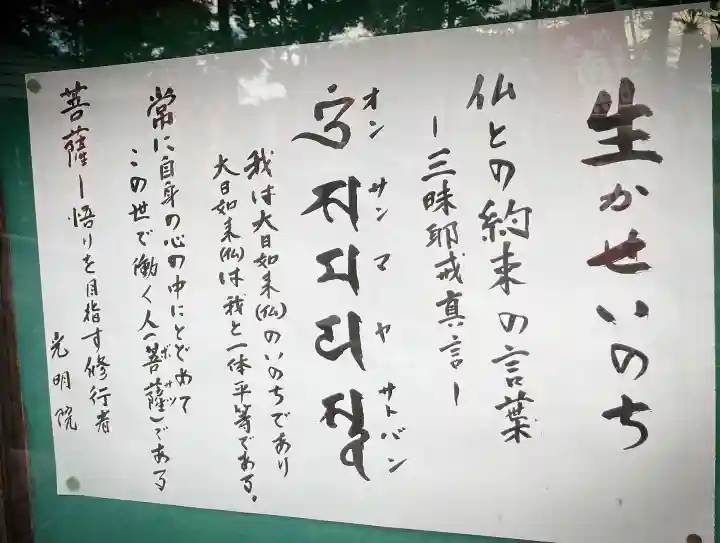 生かせいのち
仏との約束の言葉
ー三昧耶戒真言ー
オン サンマヤ サトバン
我は大日如来(仏)のいのちであり
大日如来(仏)は我と一体平等である。
常に自身の心の中にとどめて
この世で働く人(菩薩)である
ボサツ
菩薩ー悟りを目指す修行者
光明院